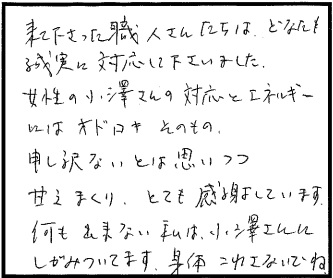 来て下さった職人さんたちは、どなたも
誠実に対応して下さいました。
女性の小澤さんの対応とエネルギー
にはオドロキそのもの。
申し訳ないとは思いつつ
甘えまくり、とても感謝しています。
何も出来ない私は、小澤さんに
しがみついてます。身体こわさないでね